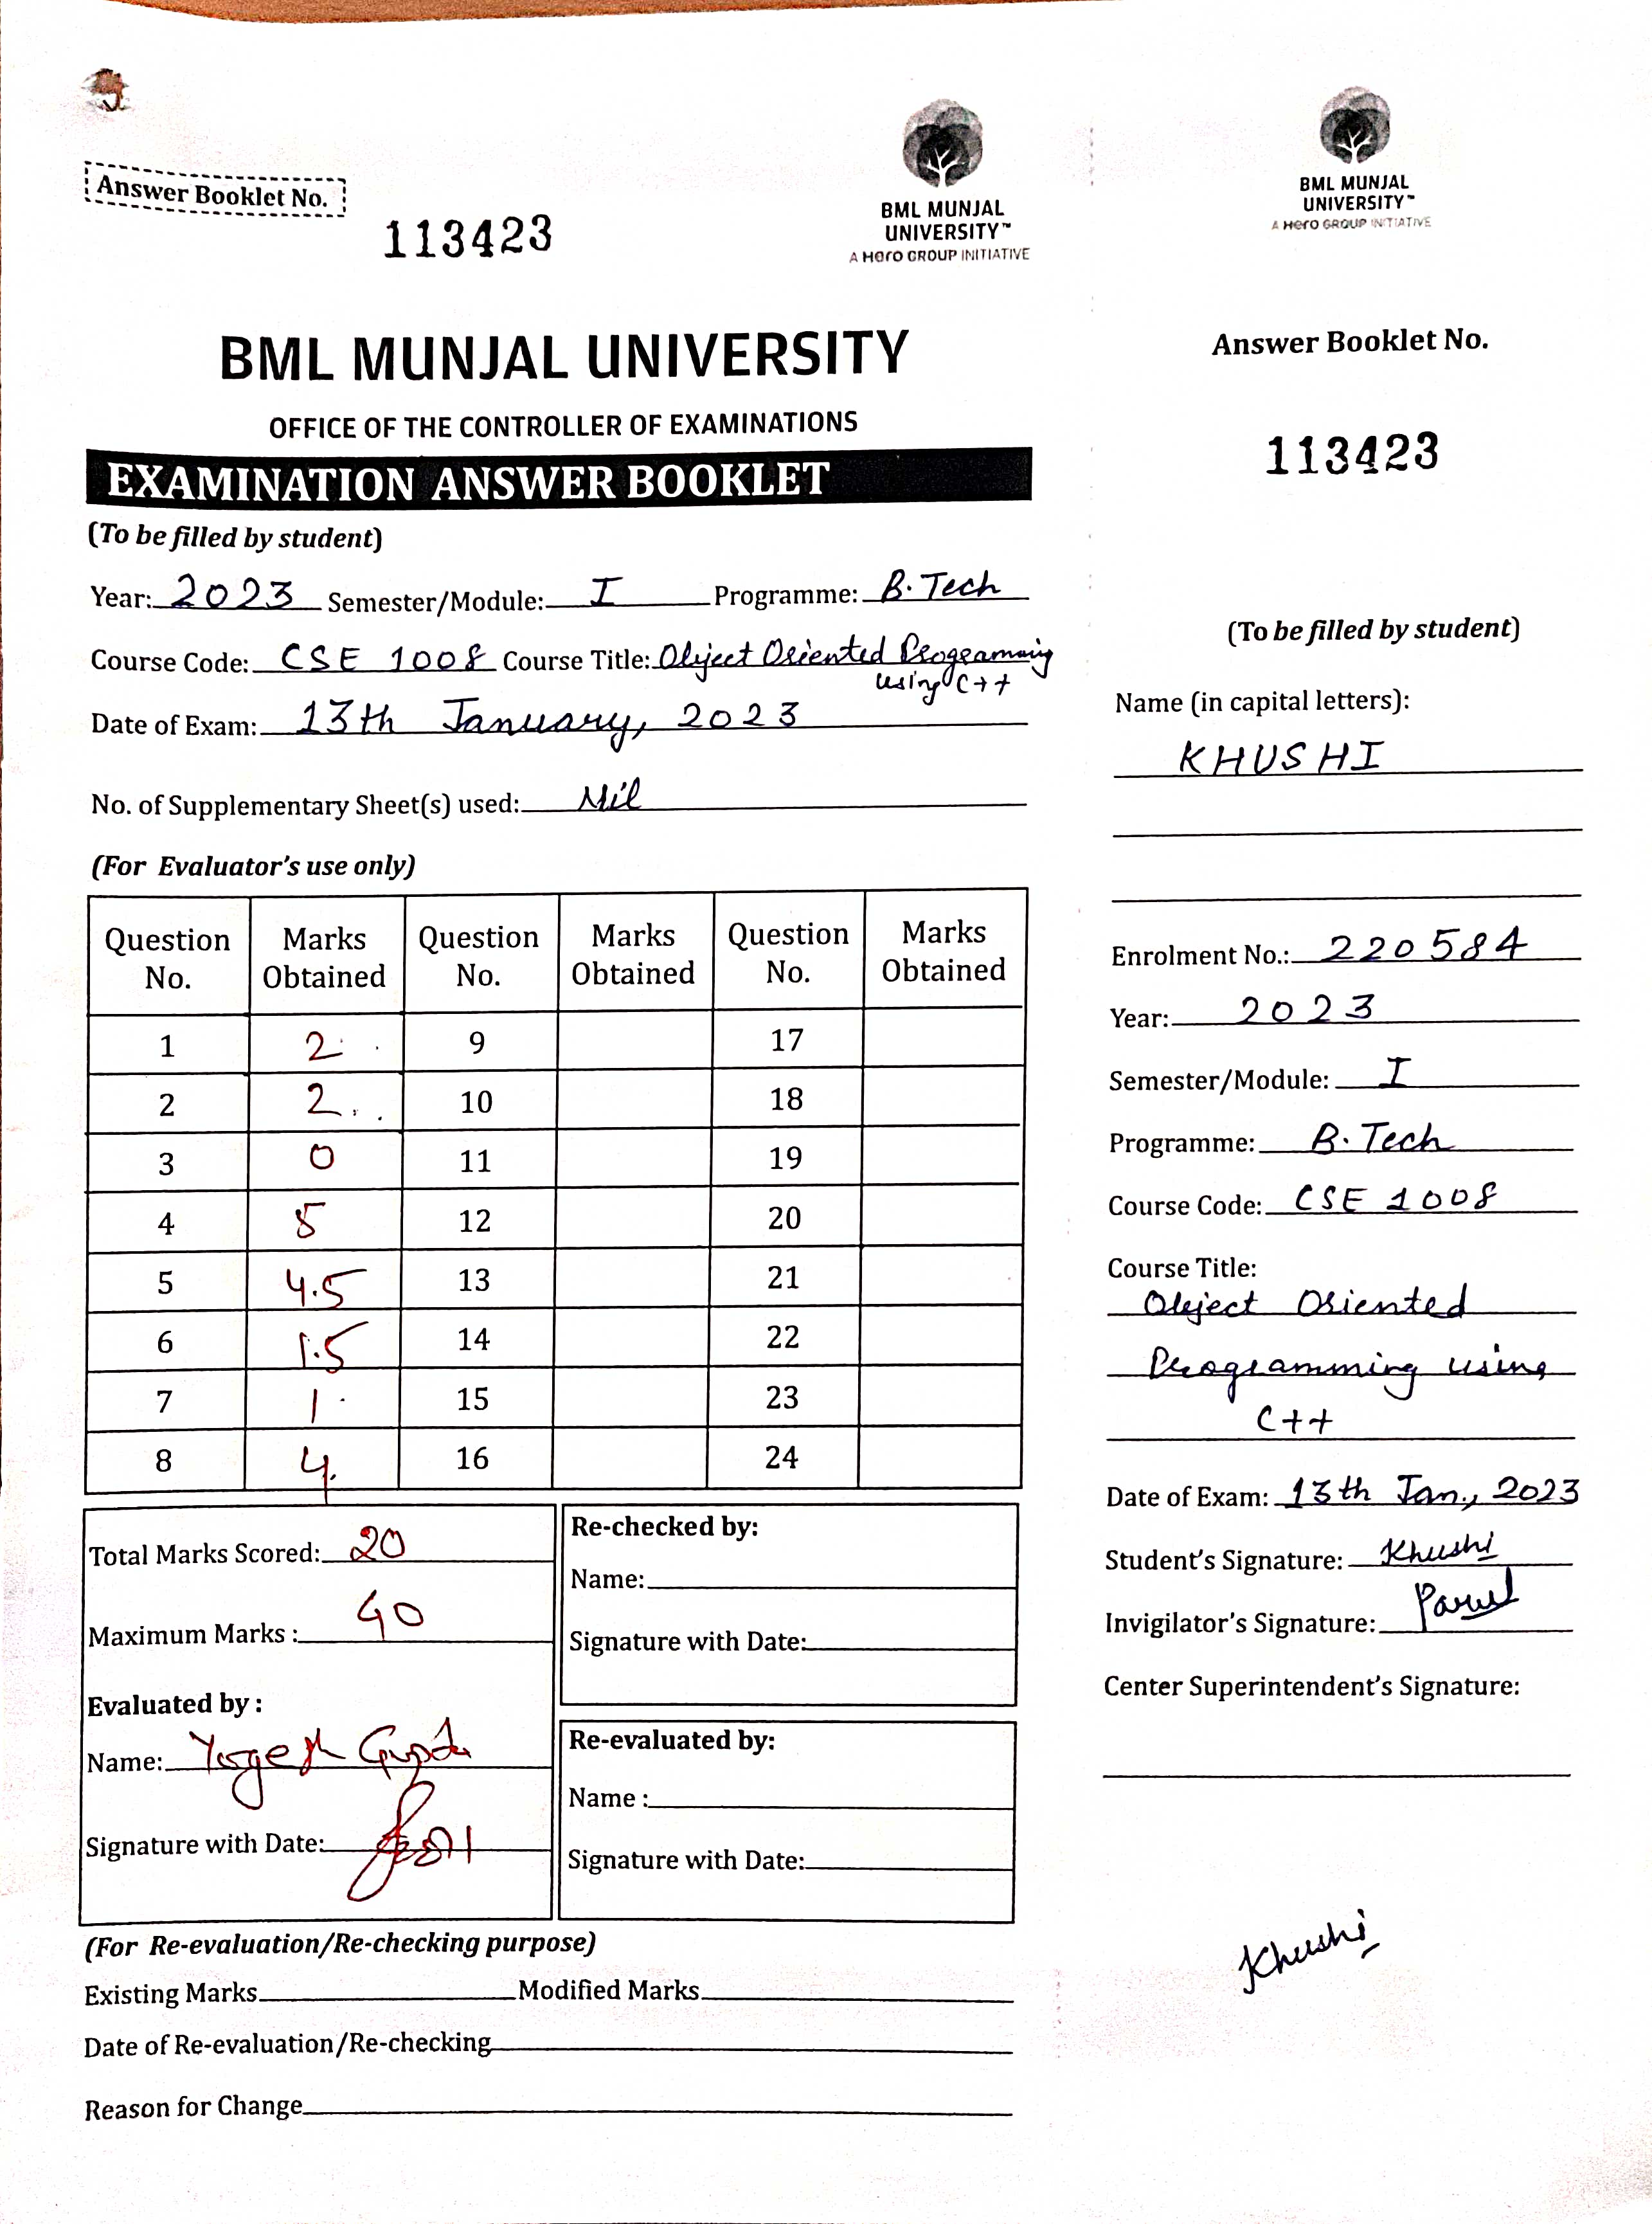 Answer Booklet No.
113423
BML MUNJAL
UNIVERSITY™
A Hero GROUP INITIATIVE
BML MUNJAL UNIVERSITY
OFFICE OF THE CONTROLLER OF EXAMINATIONS
EXAMINATION ANSWER BOOKLET
(To be filled by student)
Year: 2023 Semester/Module: I Programme: B.Tech
Course Code: CSE 1008 Course Title: Object Oriented Programing
using C++
Date of Exam: 13th January, 2023
No. of Supplementary Sheet(s) used: Nil
(For Evaluator's use only)
Question No. Marks Obtained Question No. Marks Obtained Question No. Marks Obtained
1 2 9 17
2 2 10 18
3 0 11 19
4 5 12 20
5 4.5 13 21
6 1.5 14 22
7 1 15 23
8 4 16 24
Total Marks Scored: 20
Maximum Marks : 40
Evaluated by :
Name: Yogesh Gupta
Signature with Date:
Re-checked by:
Name:
Signature with Date:
Re-evaluated by:
Name :
Signature with Date:
(For Re-evaluation/Re-checking purpose)
Existing Marks Modified Marks
Date of Re-evaluation/Re-checking
Reason for Change
BML MUNJAL
UNIVERSITY™
A Hero GROUP INITIATIVE
Answer Booklet No.
113423
(To be filled by student)
Name (in capital letters):
KHUSHI
Enrolment No.: 220584
Year: 2023
Semester/Module: I
Programme: B.Tech
Course Code: CSE 1008
Course Title:
Object Oriented
Programming using
C++
Date of Exam: 13th Jan., 2023
Student's Signature: Khushi
Invigilator's Signature: Parul
Center Superintendent's Signature:
Khushi